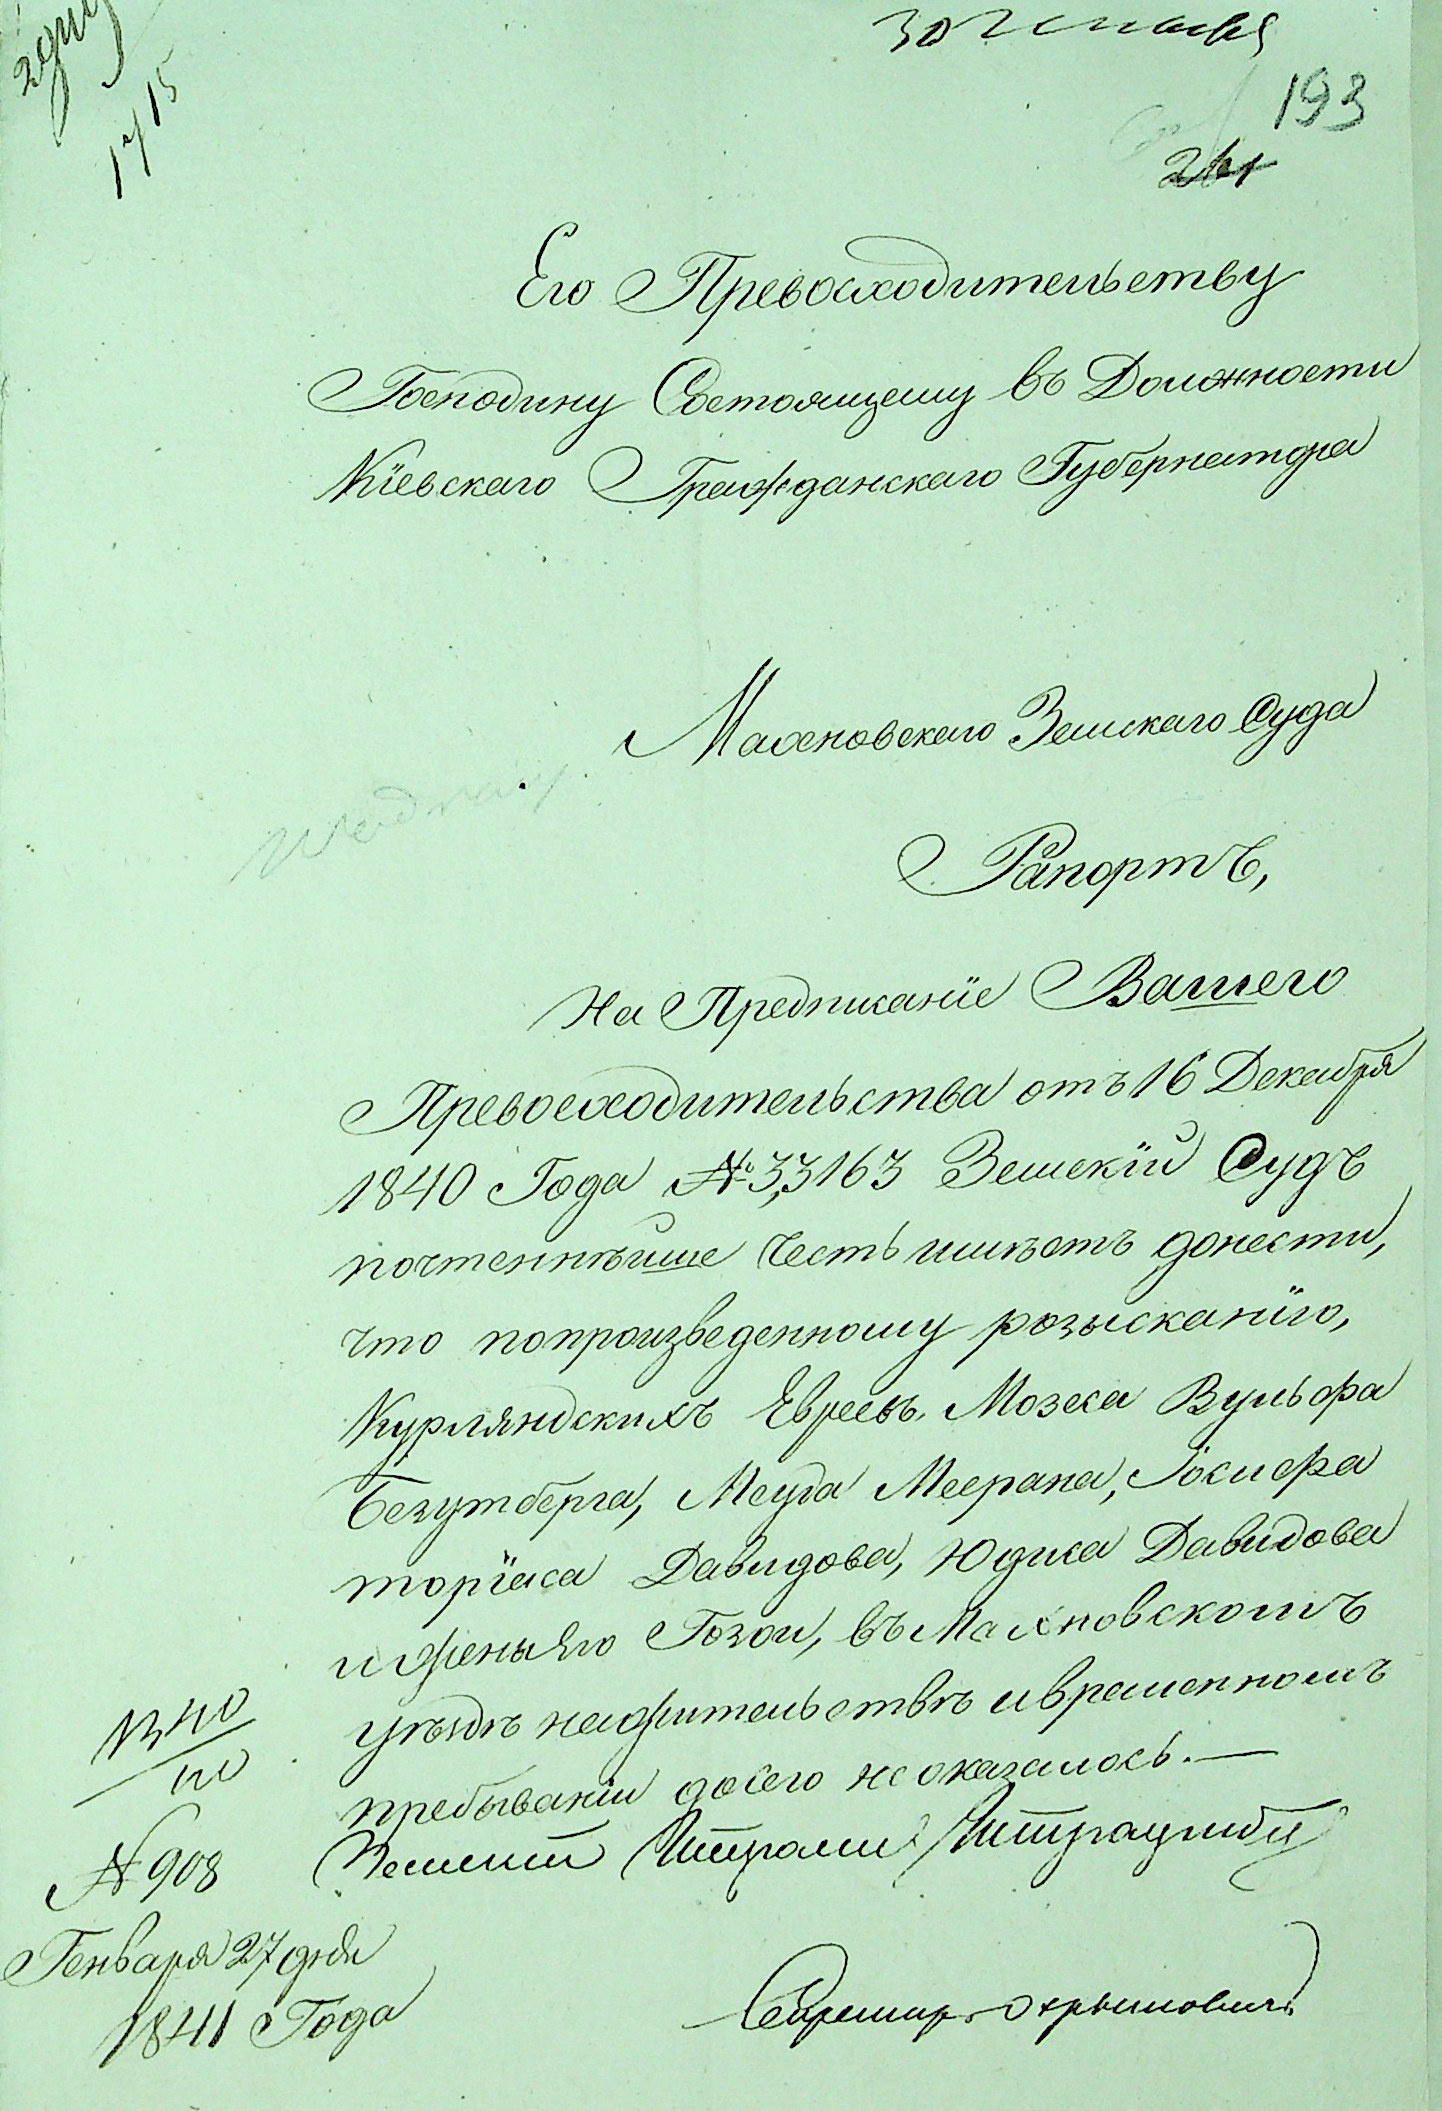 193
Его Превосходительству
Господину Состоящему въ Должности
Кіевскаго Гражданскаго Губернатора
Махновскаго Земскаго Суда
Рапортъ,
На Предписаніе Вашего
Превосходительства отъ 16 Декабря
1840 Года № 33163 Земскій Судъ
почтеннѣйше честь имѣетъ донести,
что попроизведенному розысканію,
Курляндскихъ Евреевъ Мозеса Вульфа
Безутберга, Меера, Іосифа
Давидова, Юдиса Давидова
и жены его въ Махновскомъ
уѣздѣ нажительствѣ ивременномъ
пребываніи досего не оказалось. —
№ 908
Генваря 27 дня
1841 Года
Земскій
Секретарь